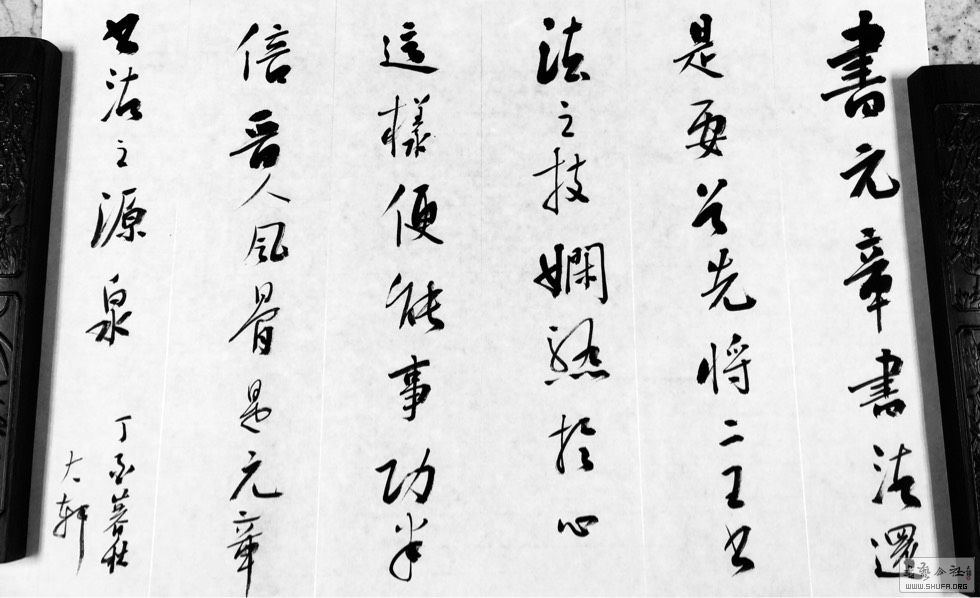 書元章書法還
是要首先將二王书
法之技嫻熟於心
這樣便能事功半
倍晋人風骨是元章
书法之源泉
丁酉暮秋
大軒
WWW.SHUFA.ORG